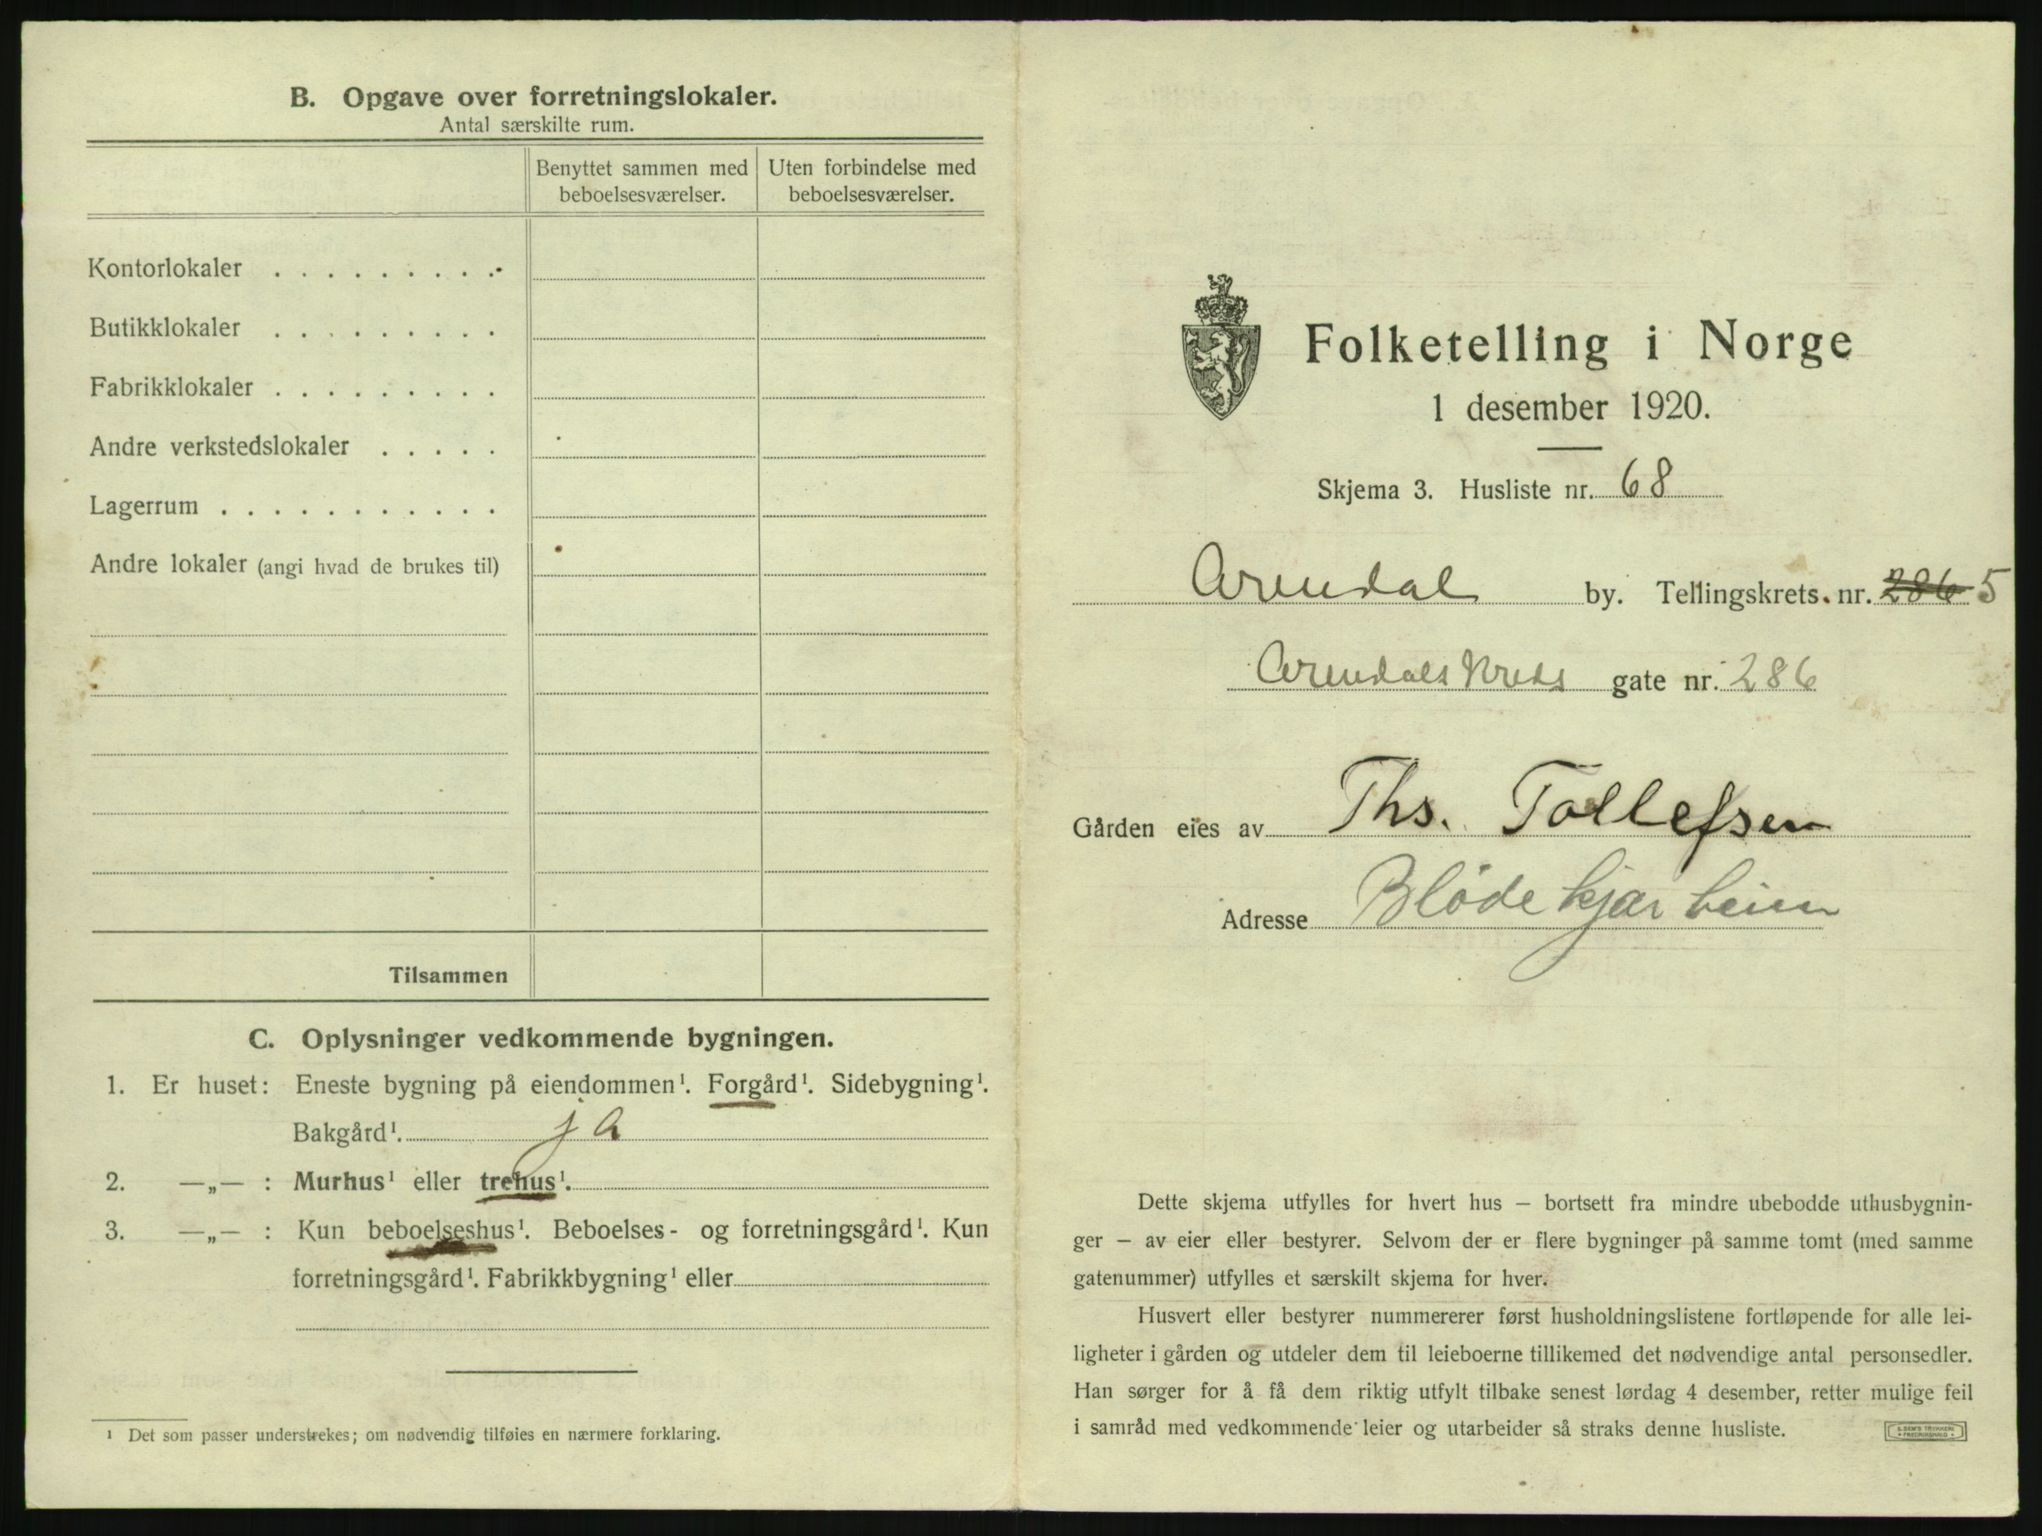 B. Opgave over forretningslokaler.
Antal særskilte rum.
Benyttet sammen med beboelsesværelser.
Uten forbindelse med beboelsesværelser.
Kontorlokaler . . . . . . . . .
Butikklokaler . . . . . . . . .
Fabrikklokaler . . . . . . . . .
Andre verkstedslokaler . . . . .
Lagerrum . . . . . . . . . . .
Andre lokaler (angi hvad de brukes til)
Tilsammen
C. Oplysninger vedkommende bygningen.
1. Er huset: Eneste bygning på eiendommen¹. Forgård¹. Sidebygning¹.
Bakgård¹. ja
2. —„— : Murhus¹ eller trehus¹.
3. —„— : Kun beboelseshus¹. Beboelses- og forretningsgård¹. Kun
forretningsgård¹. Fabrikkbygning¹ eller
¹ Det som passer understrekes; om nødvendig tilføies en nærmere forklaring.
Folketelling i Norge
1 desember 1920.
Skjema 3. Husliste nr. 68
Arendal by. Tellingskrets nr. 286 5
Arendals Kreds gate nr. 286
Gården eies av Ths. Tollefsen
Adresse Blødekjær
Dette skjema utfylles for hvert hus — bortsett fra mindre ubebodde uthusbygnin-
ger — av eier eller bestyrer. Selvom der er flere bygninger på samme tomt (med samme
gatenummer) utfylles et særskilt skjema for hver.
Husvert eller bestyrer nummererer først husholdningslistene fortløpende for alle lei-
ligheter i gården og utdeler dem til leieboerne tillikemed det nødvendige antal personsedler.
Han sørger for å få dem riktig utfylt tilbake senest lørdag 4 desember, retter mulige feil
i samråd med vedkommende leier og utarbeider så straks denne husliste.